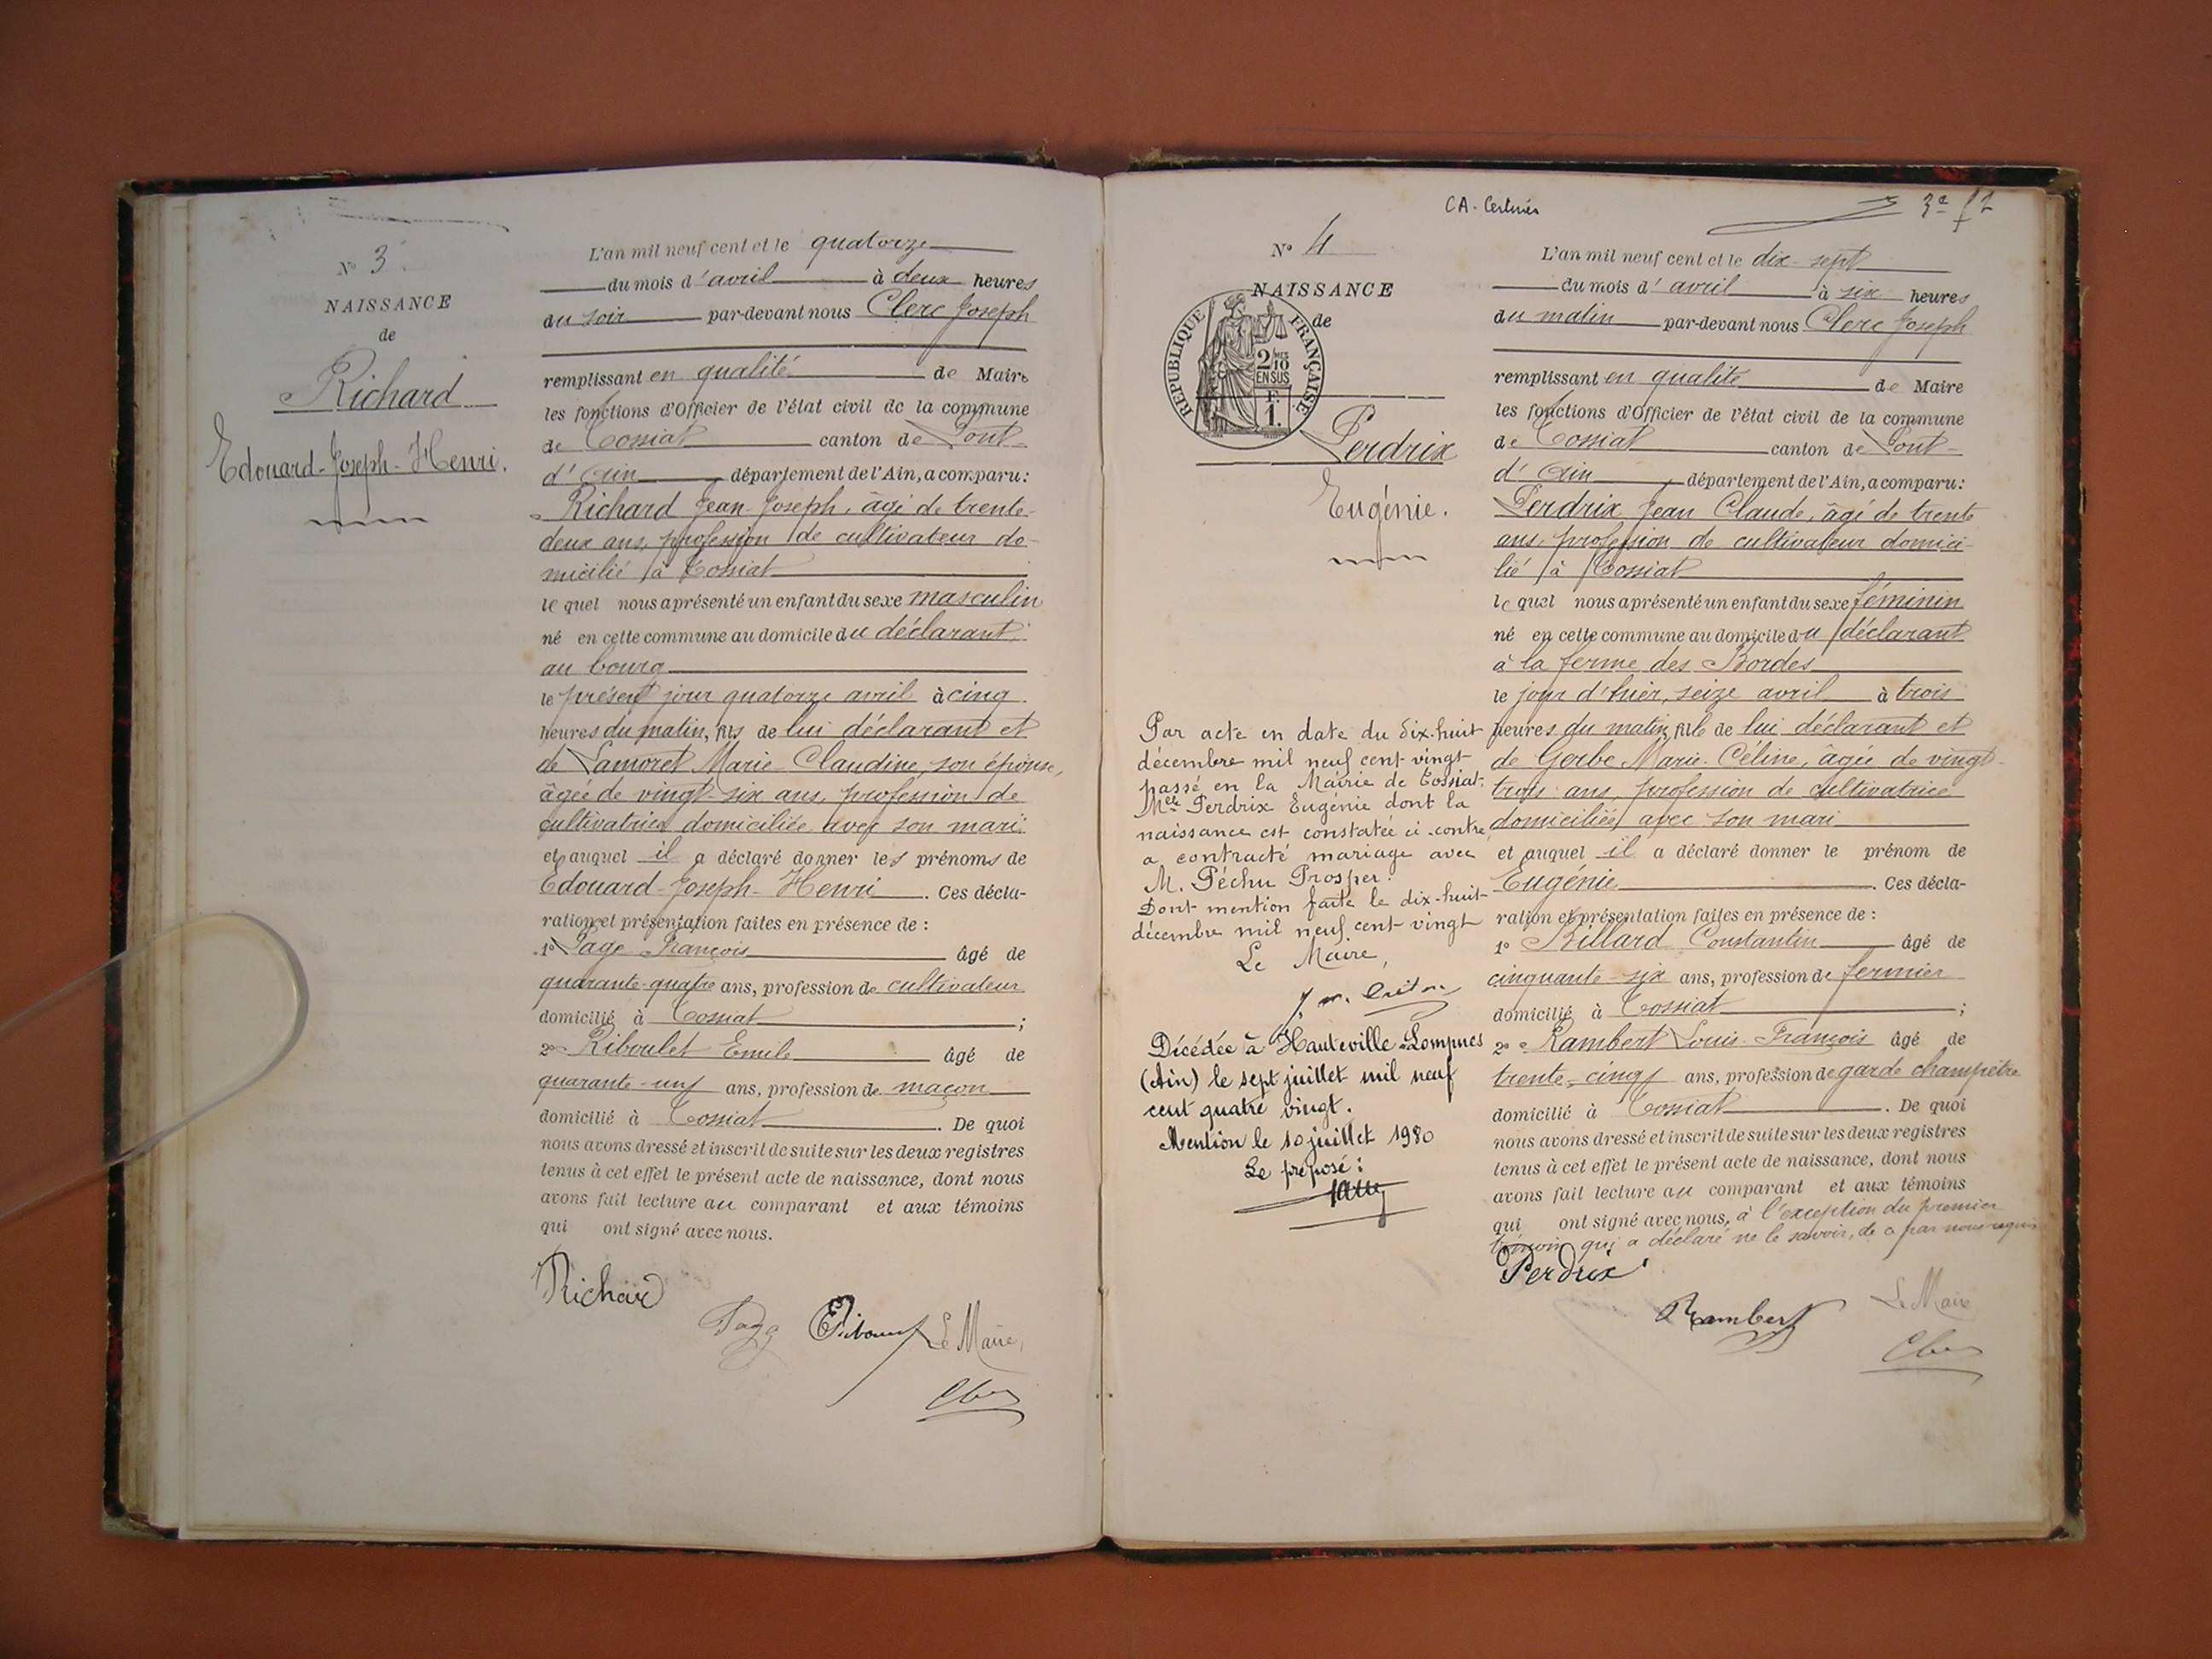 N° 3.
NAISSANCE
de
Richard
Edouard-Joseph-Henri.
L'an mil neuf cent et le quatorze
du mois d'avril à deux heures
du soir par-devant nous Clerc Joseph
remplissant en qualité de Maire
les fonctions d'Officier de l'état civil de la commune
de Tossiat canton de Pont-
d'Ain département de l'Ain, a comparu:
Richard Jean-Joseph, âgé de trente-
deux ans, profession de cultivateur do-
micilié à Tossiat
lequel nous a présenté un enfant du sexe masculin
né en cette commune au domicile du déclarant
au bourg
le présent jour quatorze avril à cinq
heures du matin, fils de lui déclarant et
de Lamoret Marie Claudine, son épouse,
âgée de vingt-six ans, profession de
cultivatrice domiciliée avec son mari
et auquel il a déclaré donner les prénoms de
Edouard-Joseph-Henri. Ces décla-
ration et présentation faites en présence de :
1° Page François âgé de
quarante-quatre ans, profession de cultivateur
domicilié à Tossiat ;
2° Riboulet Emile âgé de
quarante-un ans, profession de maçon
domicilié à Tossiat. De quoi
nous avons dressé et inscrit de suite sur les deux registres
tenus à cet effet le présent acte de naissance, dont nous
avons fait lecture au comparant et aux témoins
qui ont signé avec nous.
Richard
Page
Le Maire,
CA. Certinés
3e f2
N° 4
NAISSANCE
de
REPUBLIQUE FRANÇAISE
2/10
EN SUS
F.
1.
Perdrix
Eugénie.
Par acte en date du dix-huit
décembre mil neuf cent vingt
passé en la Mairie de Tossiat
Melle Perdrix Eugénie dont la
naissance est constatée ci-contre
a contracté mariage avec
M. Péchu Prosper.
Dont mention faite le dix-huit
décembre mil neuf cent vingt
Le Maire,
Décédée à Hauteville-Lompnes
(Ain) le sept juillet mil neuf
cent quatre vingt.
Mention le 10 juillet 1980
Le préposé :
L'an mil neuf cent et le dix-sept
du mois d'avril à six heures
du matin par-devant nous Clerc Joseph
remplissant en qualité de Maire
les fonctions d'Officier de l'état civil de la commune
de Tossiat canton de Pont-
d'Ain département de l'Ain, a comparu:
Perdrix Jean Claude, âgé de trente
ans, profession de cultivateur domici-
lié à Tossiat
lequel nous a présenté un enfant du sexe féminin
né en cette commune au domicile du déclarant
à la ferme des Bordes
le jour d'hier, seize avril à trois
heures du matin, fille de lui déclarant et
de Gerbe Marie-Céline, âgée de vingt-
trois ans, profession de cultivatrice
domiciliée avec son mari
et auquel il a déclaré donner le prénom de
Eugénie. Ces décla-
ration et présentation faites en présence de :
1° Billard Constantin âgé de
cinquante-six ans, profession de fermier
domicilié à Tossiat ;
2° Rambert Louis-François âgé de
trente-cinq ans, profession de garde champêtre
domicilié à Tossiat. De quoi
nous avons dressé et inscrit de suite sur les deux registres
tenus à cet effet le présent acte de naissance, dont nous
avons fait lecture au comparant et aux témoins
qui ont signé avec nous, à l'exception du premier
témoin qui a déclaré ne le savoir, de ce par nous requis
Perdrix
Rambert
Le Maire